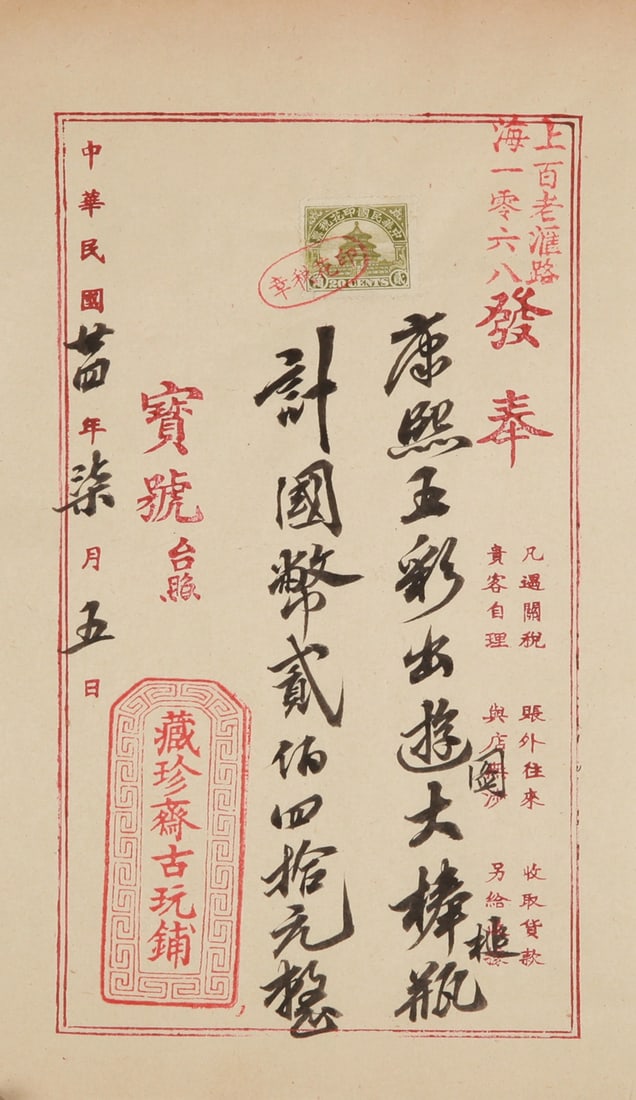 上百老滙路
海一零六八
發奉
凡遇關稅　賬外往來　收取貨款
貴客自理　與店無涉　另給
康熙五彩出遊圖大棒槌瓶
中華民國印花稅票
貳
20 CENTS
印花稅章
計國幣貳佰四拾元整
寶號台照
藏珍齋古玩鋪
中華民國廿四年柒月五日